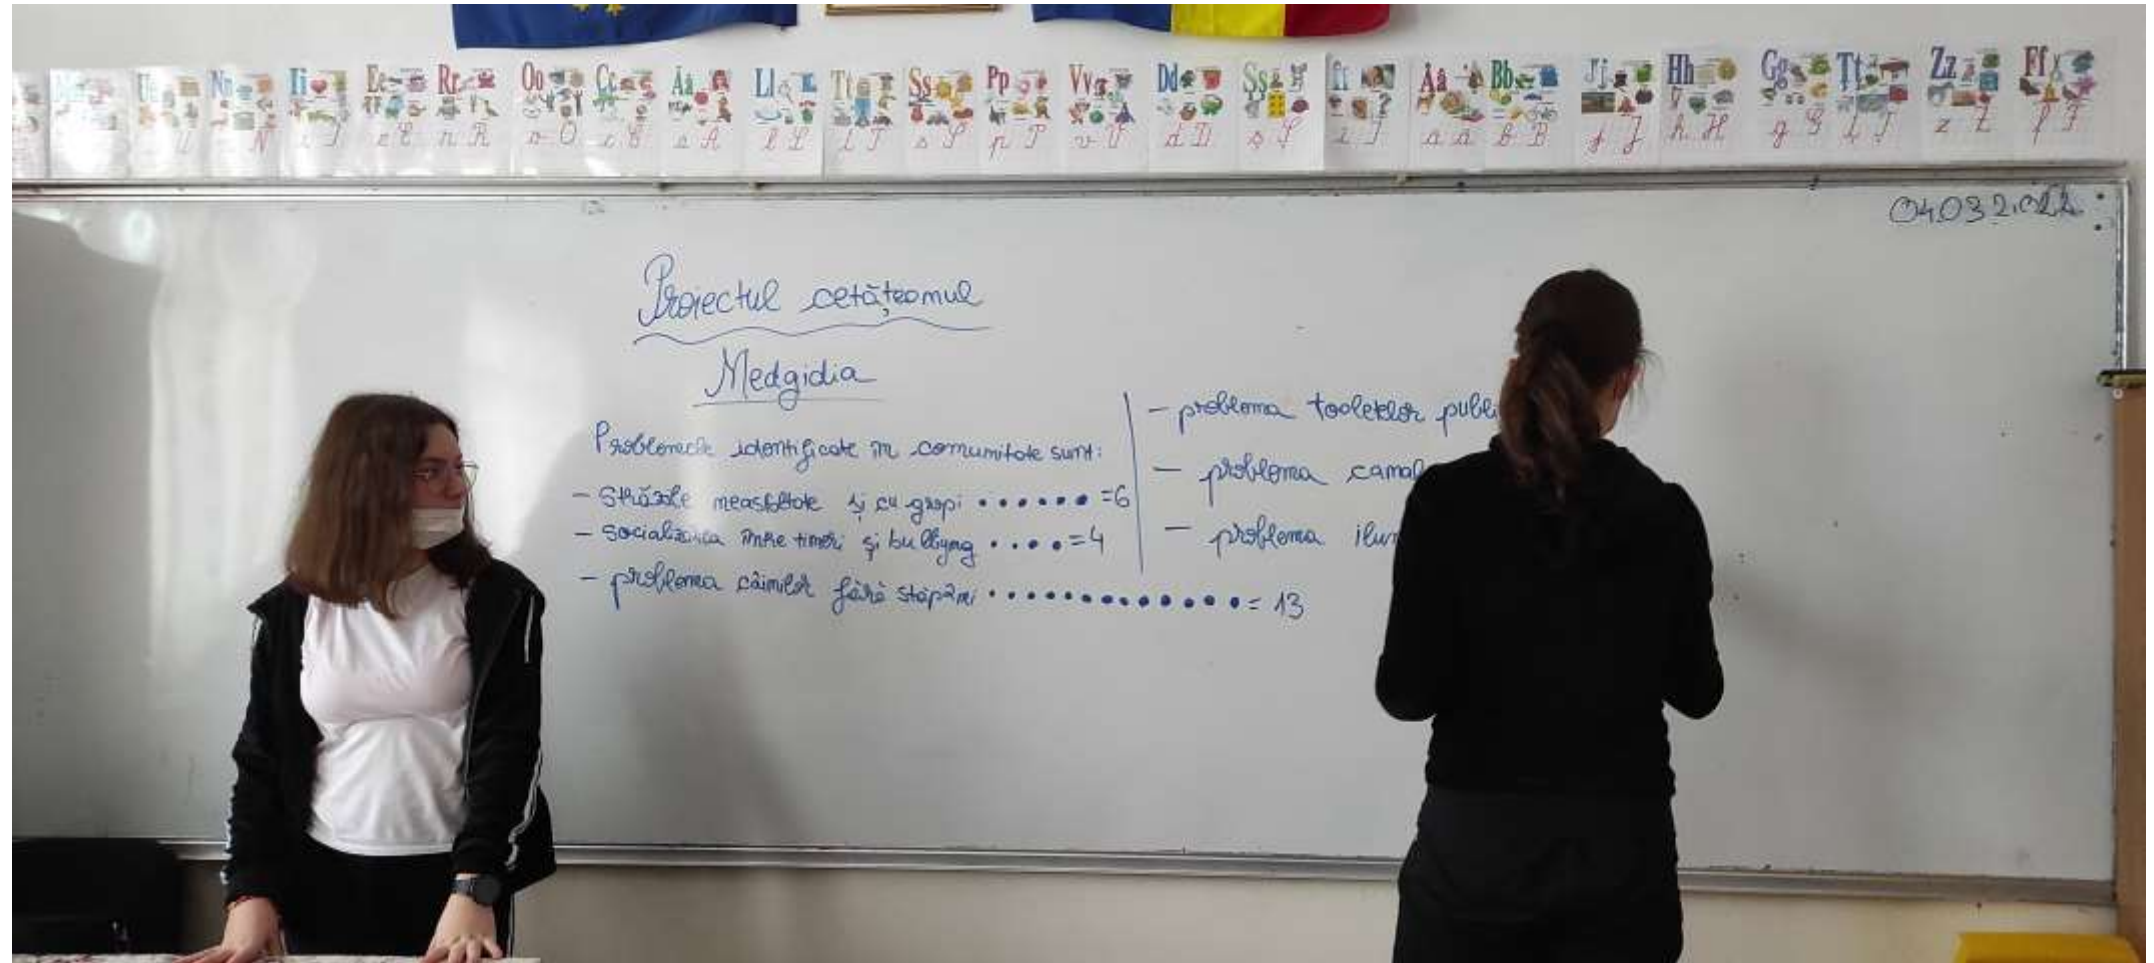 Uu Nn Ii Ee Rr Oo Cc Ăă Ll Tt Ss Pp Vv Dd Șș Îî Ââ Bb Jj Hh Gg Țț Zz Ff
04.03.2022
Proiectul cetățeanul
Medgidia
Problemele identificate în comunitate sunt:
- Străzile neasfaltate și cu gropi • • • • • • =6
- socializarea între tineri și bullyng • • • • =4
- problema câinilor fără stăpâni • • • • • • • • • • • • • = 13
- problema toaletelor publi
- problema canal
- problema ilum